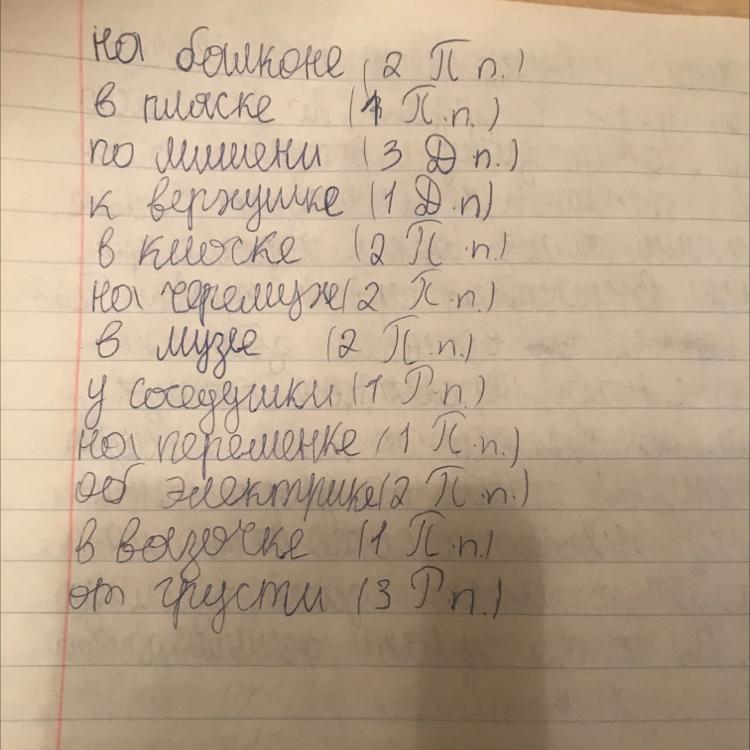 на балконе (2 П п.)
в пляске (1 П.п.)
по мишени (3 Д п.)
к верхушке (1 Д.п)
в киоске (2 П.п.)
на черемухе (2 П.п.)
в музее (2 П.п.)
у соседушки (1 Р.п.)
на переменке (1 П.п.)
об электрике (2 П.п.)
в вазочке (1 П.п.)
от грусти (3 Р п.)